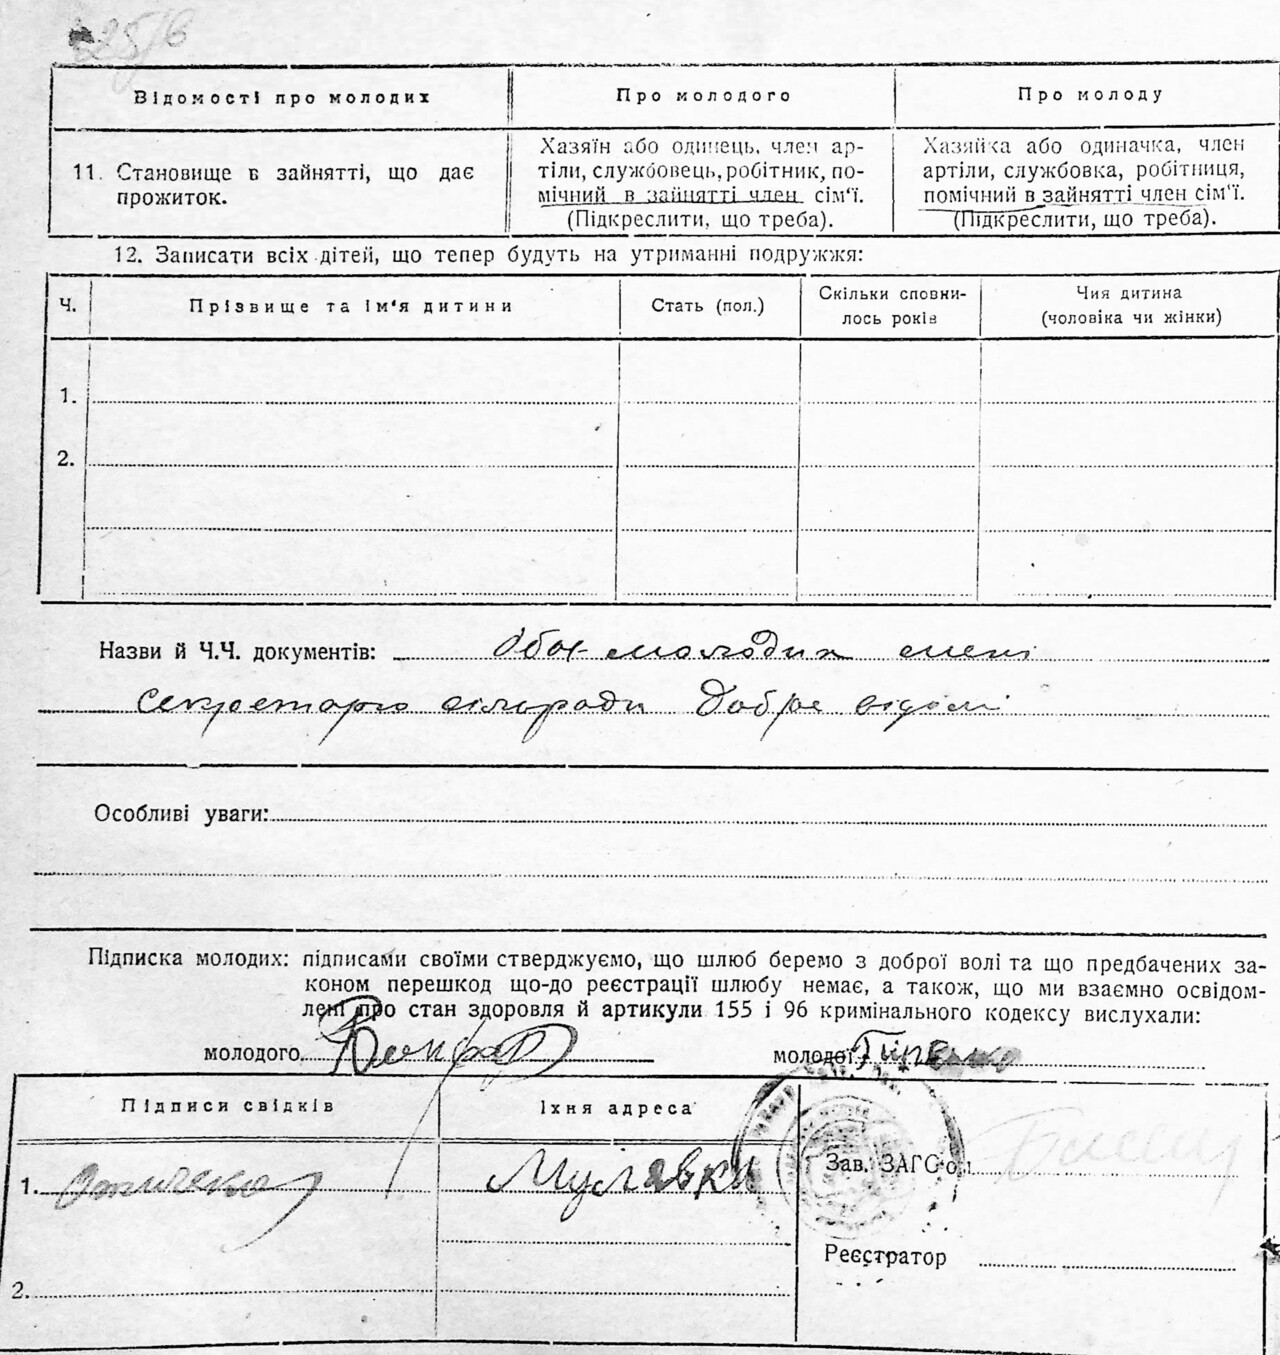 225/в
Відомості про молодих
Про молодого
Про молоду
11. Становище в зайнятті, що дає
прожиток.
Хазяїн або одинець, член ар-
тіли, службовець, робітник, по-
мічний в зайнятті член сім'ї.
(Підкреслити, що треба).
Хазяйка або одиначка, член
артіли, службовка, робітниця,
помічний в зайнятті член сім'ї.
(Підкреслити, що треба).
12. Записати всіх дітей, що тепер будуть на утриманні подружжя:
Ч.
Прізвище та ім'я дитини
Стать (пол.)
Скільки сповни-
лось років
Чия дитина
(чоловіка чи жінки)
1.
2.
Назви й Ч.Ч. документів: Обох молодих мені
секретарю сільради добре відомі
Особливі уваги:
Підписка молодих: підписами своїми стверджуємо, що шлюб беремо з доброї волі та що предбачених за-
коном перешкод що-до реєстрації шлюбу немає, а також, що ми взаємно освідом-
лені про стан здоровля й артикули 155 і 96 кримінального кодексу вислухали:
молодого
молодої
Підписи свідків
Їхня адреса
1.
Мулявки
Зав. ЗАГС'ом
Реєстратор
2.